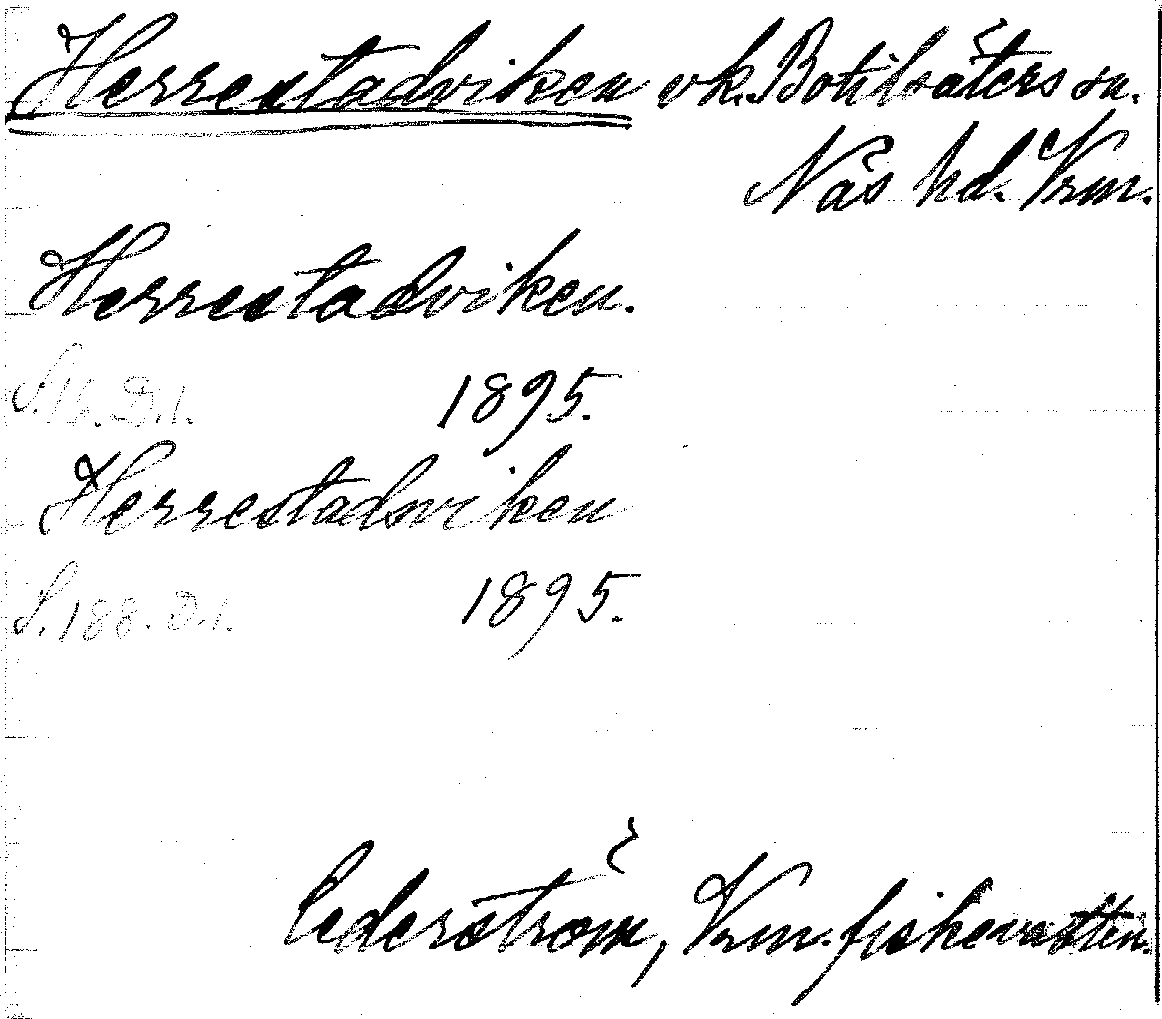 Herrestadviken vk. Botilsäters sn.
Näs hd. Vrm.
Herrestadviken.
S. 16. D.1. 1895.
Herrestadsviken
S. 188. D.1. 1895.
Cederström, Vrm. fiskevatten.